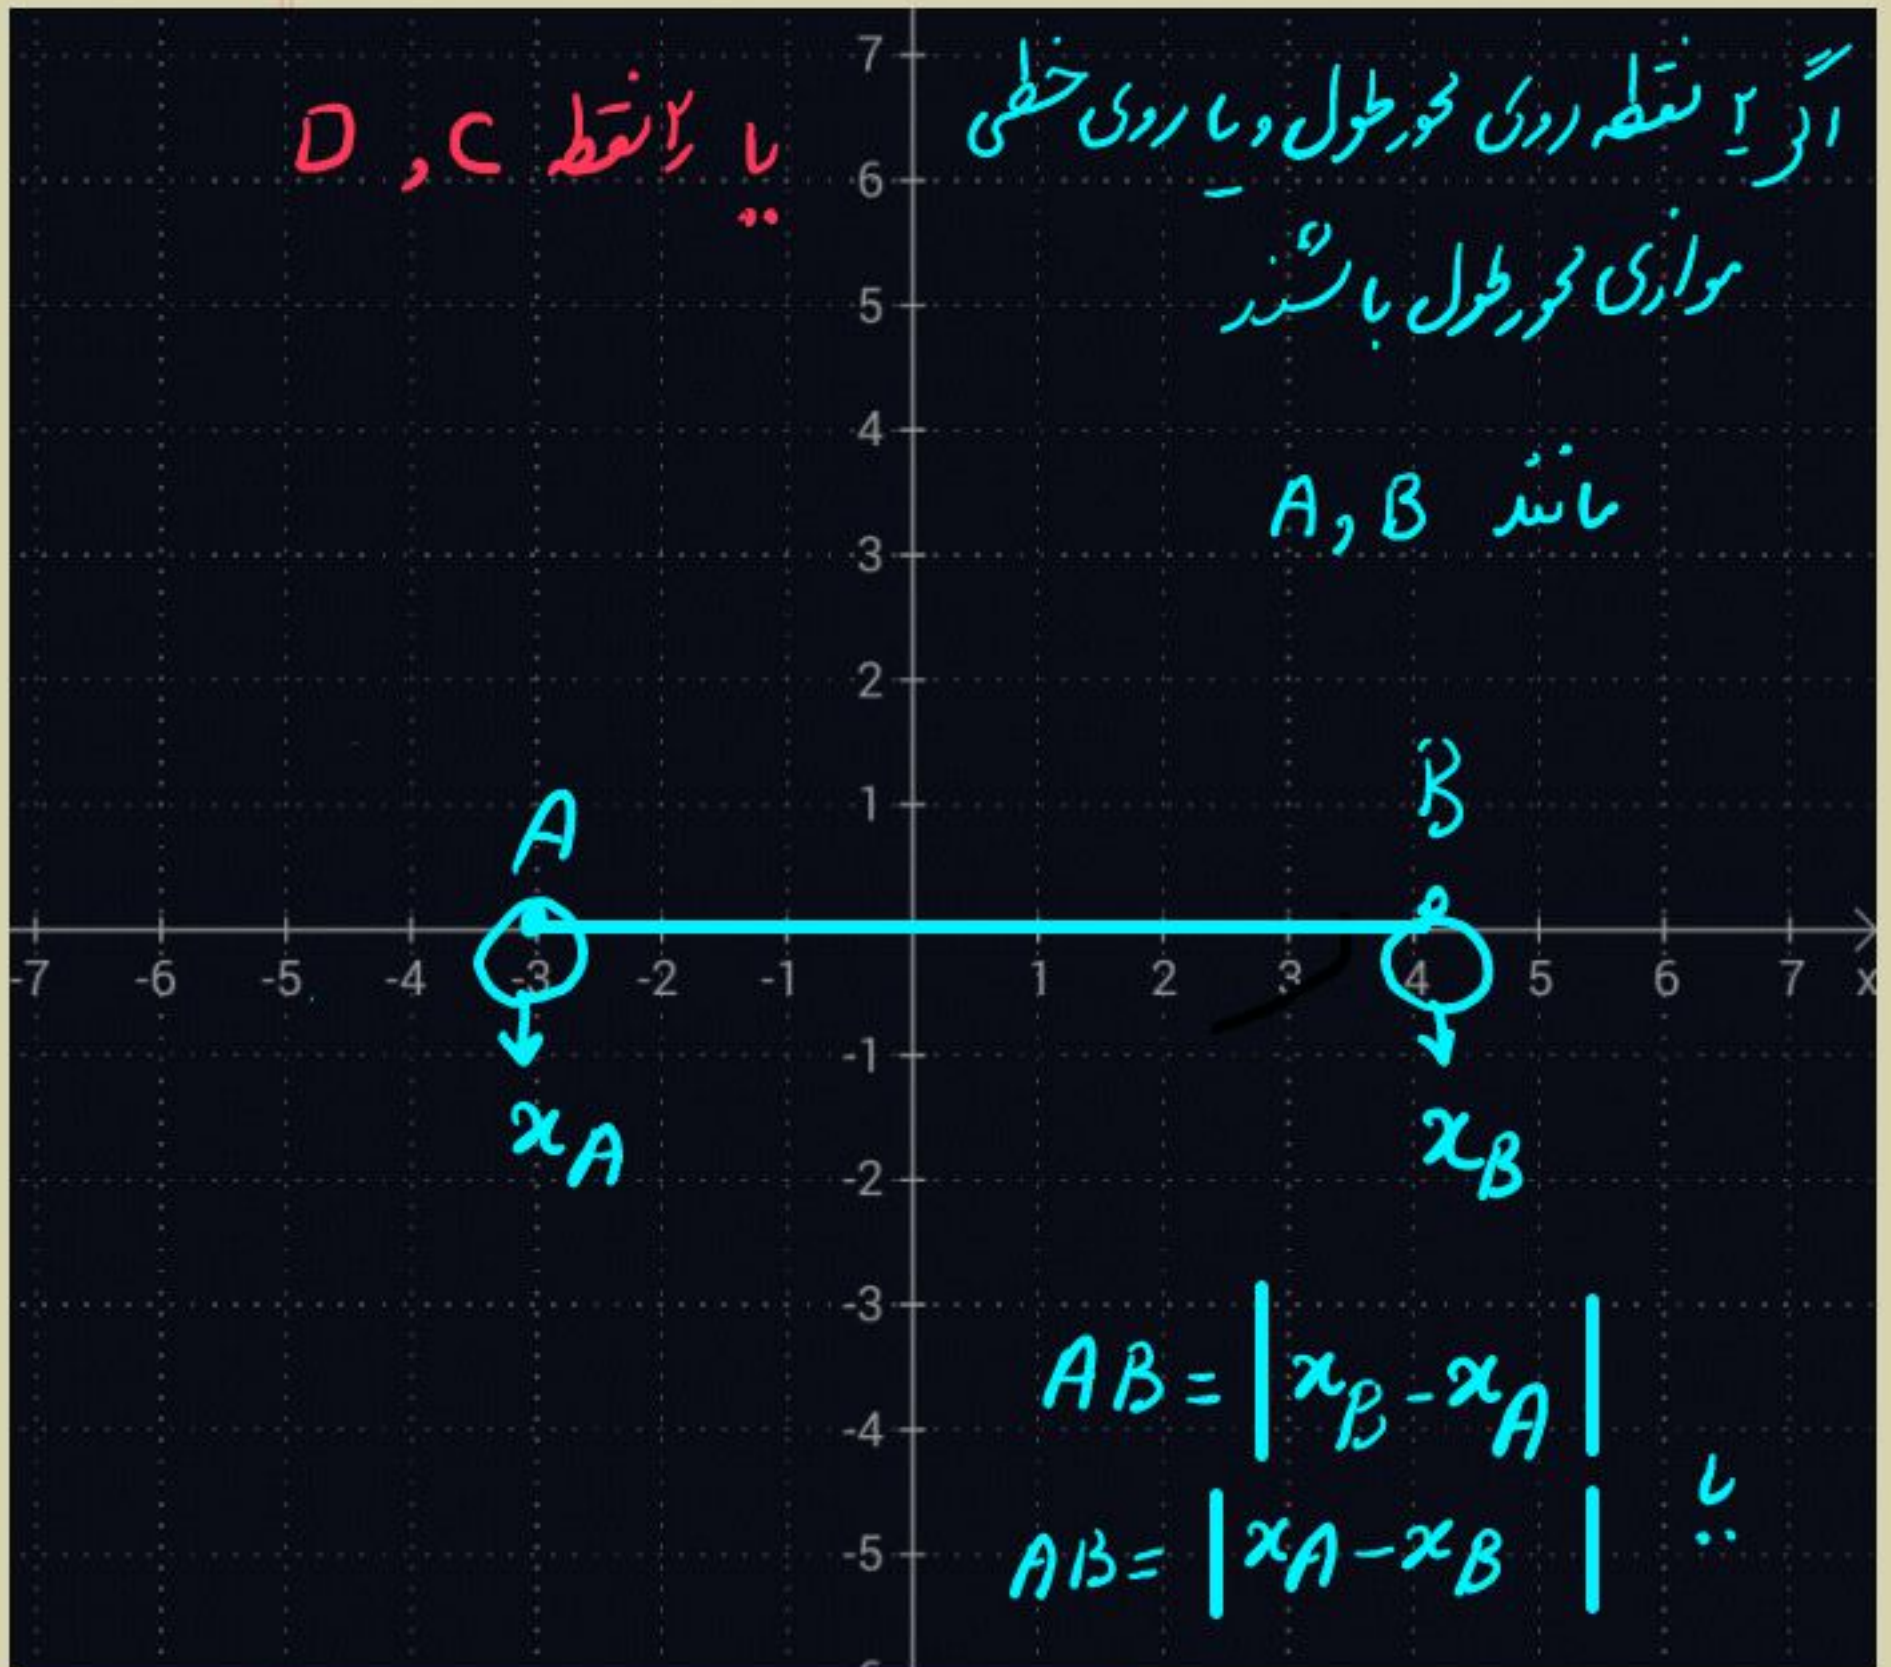 اگر ۲ نقطه روی محور طول و یا روی خطی
موازی محور طول باشند
مانند A , B
یا ۲ نقطه C , D
7
6
5
4
3
2
1
A B
-7 -6 -5 -4 -3 -2 -1 1 2 3 4 5 6 7 x
-1
xA xB
-2
-3
AB = |xB - xA|
-4
یا
AB = |xA - xB|
-5